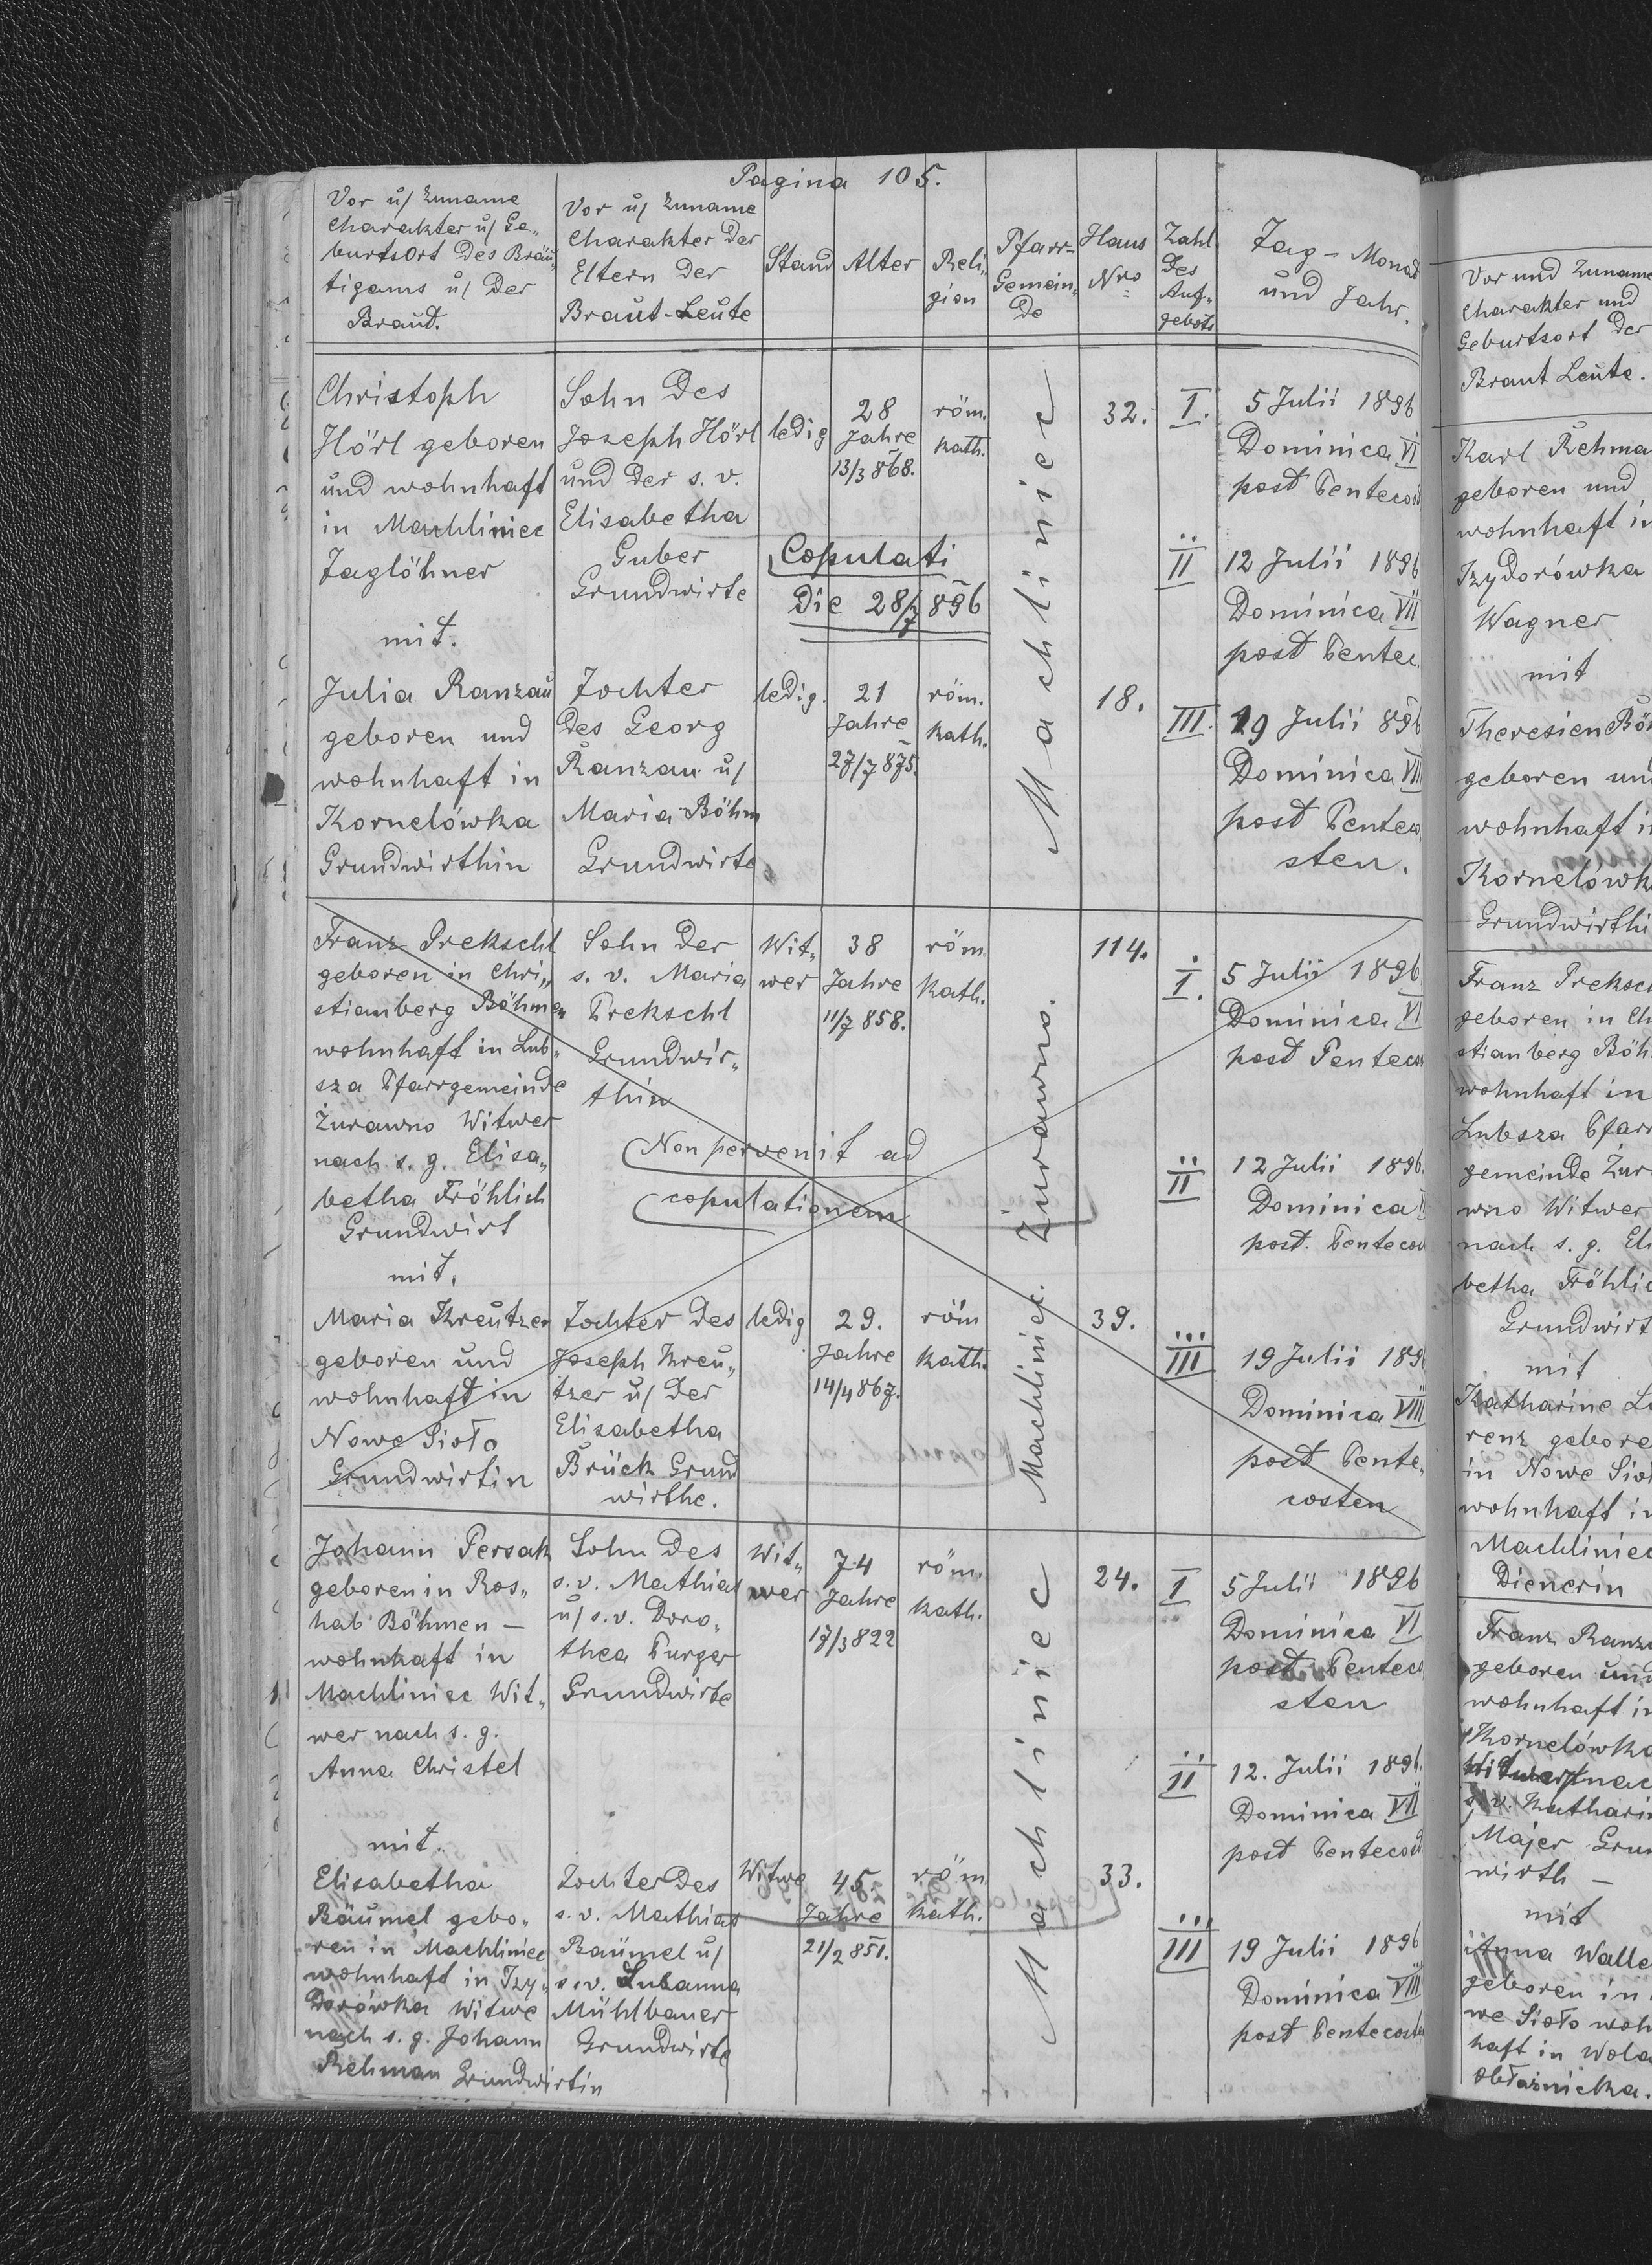 Pagina 105.
Vor u/ Zuname
Charakter u/ Ge„
burtsort des Bräu„
tigams u/ der
Braut.
Vor u/ Zuname
Charakter der
Eltern der
Braut-Leute
Stand
Alter
Reli„
gion
Pfarr-
Gemein„
de
Haus
Nro
Zahl
des
Auf„
gebots
Tag - Monat
und Jahr.
Christoph
Hörl geboren
und wohnhaft
in Machliniec
Taglöhner
mit.
Julia Ranzau
geboren und
wohnhaft in
Kornelówka
Grundwirthin
Sohn des
Joseph Hörl
und der s. v.
Elisabetha
Guber
Grundwirte
Tochter
des Georg
Ranzau u/
Maria Böhm
Grundwirte
ledig
28
Jahre
13/3 868.
röm.
kath.
Copulati
die 28/7 896
ledig.
21
Jahre
27/7 875.
röm.
kath.
Machliniec
32.
18.
I.
5 Julii 1896
Dominica VI
post Pentecost
II
12 Julii 1896
Dominica VII
post Pentec
III.
19 Julii 896
Dominica VII
post Penteco
sten.
Franz Prekschl
geboren in Chri„
stianberg Böhmen
wohnhaft in Lub„
sza Pfarrgemeinde
Żurawno Witwer
nach s. g. Elisa„
betha Fröhlich
Grundwirt
mit.
Maria Kreutzer
geboren und
wohnhaft in
Nowe Sioło
Grundwirtin
Sohn der
s. v. Maria
Prekschl
Grundwir„
thin
Non pervenit ad
copulationem
Tochter des
Joseph Kreu„
tzer u/ der
Elisabetha
Brück Grund
wirthe.
Wit„
wer
38
Jahre
11/7 858.
röm.
kath.
ledig
29.
Jahre
14/4 867.
röm
kath.
Machliniec. Żurawno.
114.
39.
I.
5 Julii 1896
Dominica VI
post Penteco
II
12 Julii 1896.
Dominica
post. Pentecos
III
19 Julii 189
Dominica VIII
post Pente„
costen
Johann Persak
geboren in Ros„
hab Böhmen —
wohnhaft in
Machliniec Wit„
wer nach s. g.
Anna Christel
mit.
Elisabetha
Bäumel gebo„
ren in Machliniec
wohnhaft in Izy„
dorówka Witwe
nach s. g. Johann
Rehman Grundwirtin
Sohn des
s. v. Mathias
u/ s. v. Doro„
thea Purger
Grundwirte
Tochter des
s. v. Mathias
Baümel u/
s. v. Susanna
Mühlbauer
Grundwirte
Wit„
wer
74
Jahre
17/3 822
röm.
kath.
Witwe
45.
Jahre
21/2 851.
röm.
kath.
Machliniec
24.
33.
I
5 Julii 1896
Dominica VI
post Penteco
sten
II
12. Julii 1896.
Dominica VII
post Pentecost
III
19 Julii 1896
Dominica VIII
post Pentecoste
Vor und Zuname
Charakter und
Geburtsort der
Braut Leute.
Karl Rehma
geboren und
wohnhaft in
Izydorówka
Wagner
mit
Theresien Böh
geboren und
wohnhaft i
Kornelówk
Grundwirthi
Franz Preksch
geboren in Ch
stianberg Böh
wohnhaft in
Lubsza Pfarr
gemeinde Żur
wno Witwer
nach s. g. Eli
betha Fröhlic
Grundwirt
mit
Katharine Lo
renz gebore
in Nowe Sio
wohnhaft in
Machliniec
Dienerin
Franz Ranza
geboren und
wohnhaft in
Kornelówka
Witwer nac
s. v. Kathari
Majer Grun
wirth —
mit
Anna Walle
geboren in
we Sioło woh
haft in Wola
Obłaznicka.